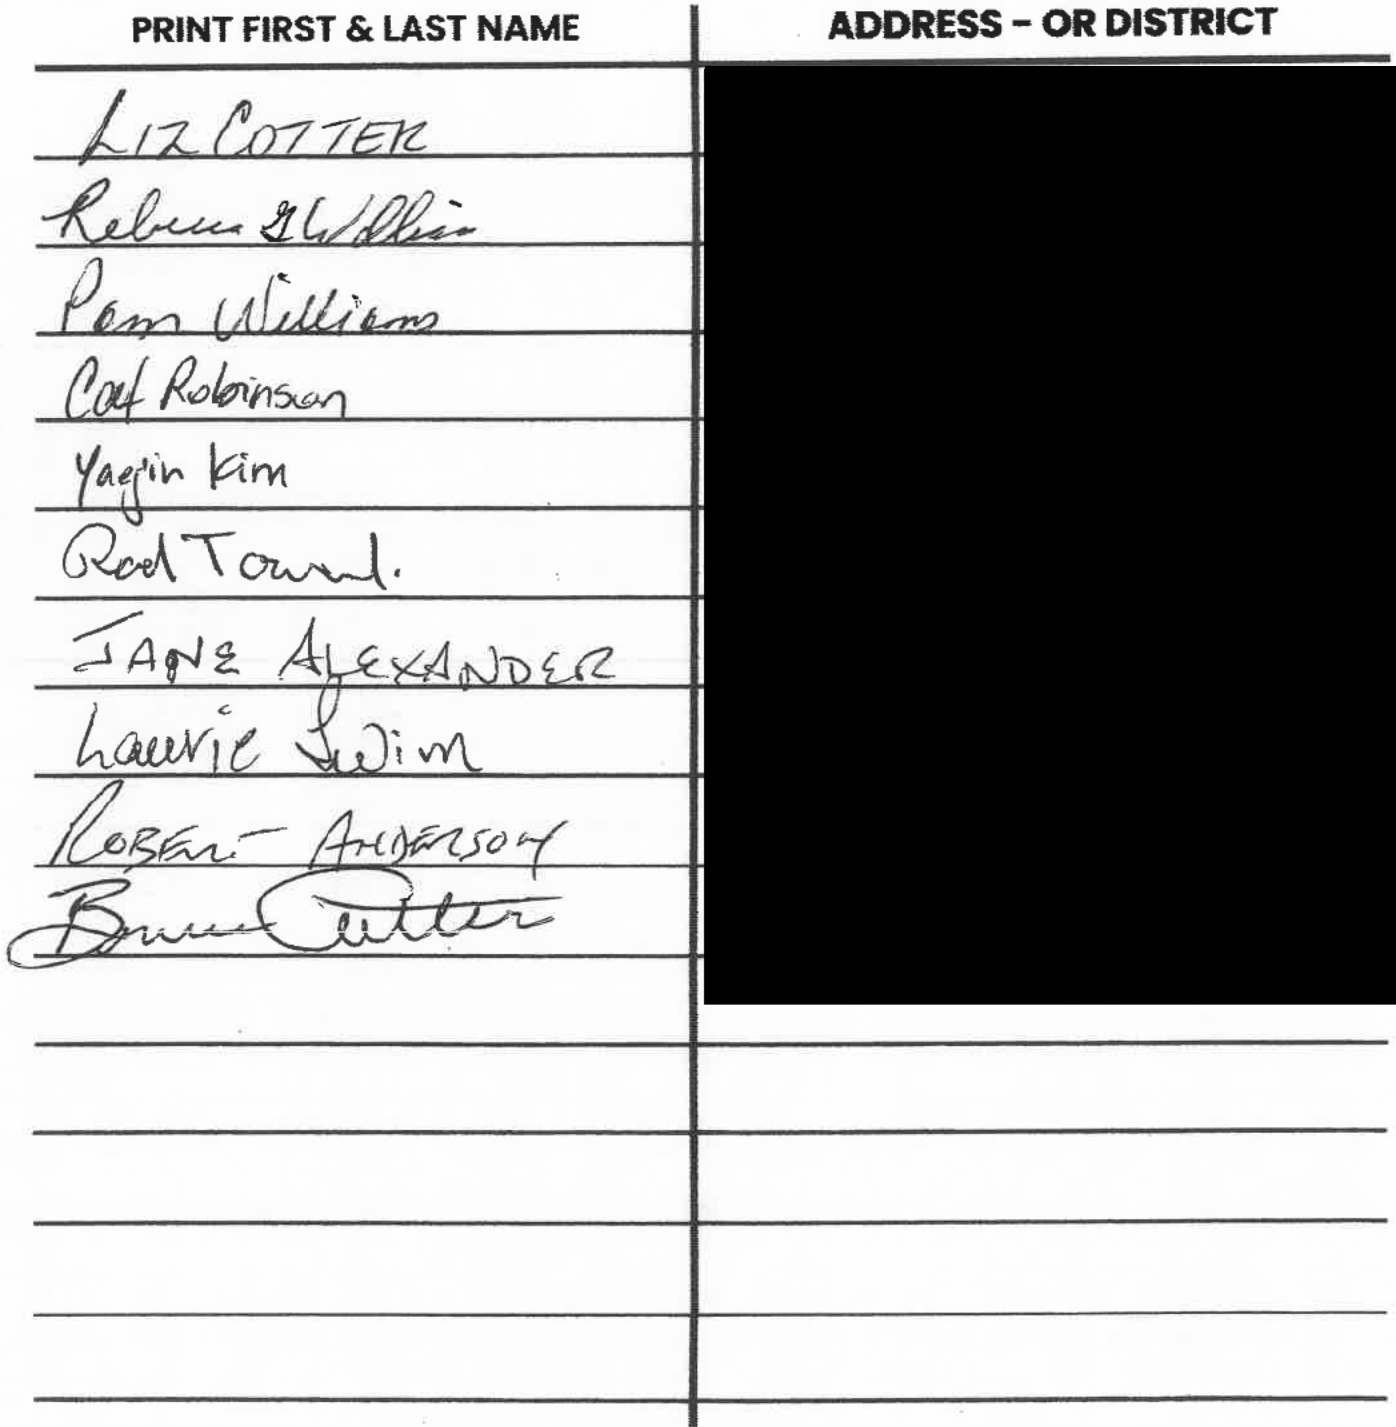 PRINT FIRST & LAST NAME ADDRESS – OR DISTRICT
LIZ COTTER
Rebecca G William
Pam Williams
Cat Robinson
Yaejin Kim
Rod
JANE ALEXANDER
Laurie Swim
ROBERT ANDERSON
Cutter